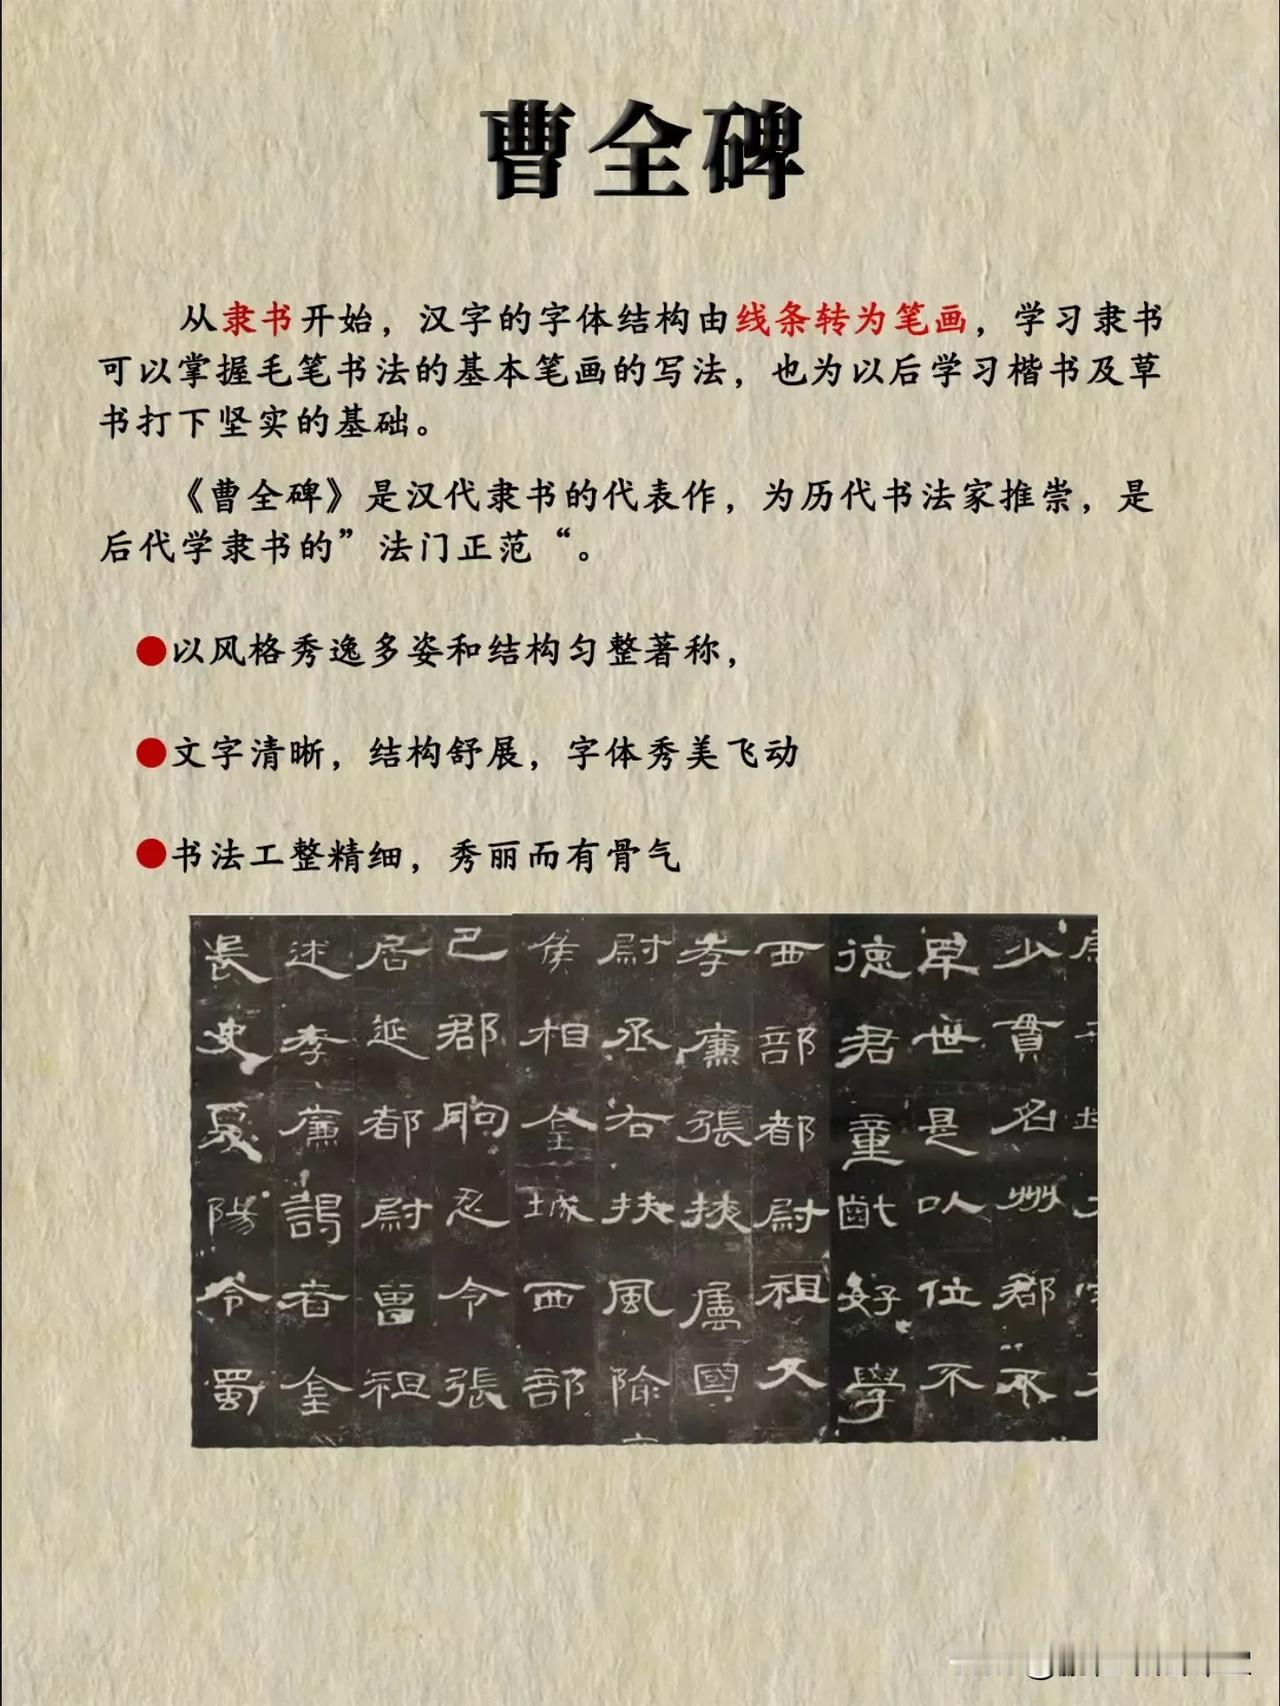 曹全碑
从隶书开始，汉字的字体结构由线条转为笔画，学习隶书
可以掌握毛笔书法的基本笔画的写法，也为以后学习楷书及草
书打下坚实的基础。
《曹全碑》是汉代隶书的代表作，为历代书法家推崇，是
后代学隶书的”法门正范“。
以风格秀逸多姿和结构匀整著称，
文字清晰，结构舒展，字体秀美飞动
书法工整精细，秀丽而有骨气
少貫名州郡不
早世是以位不
德君童齔好學
西部都尉祖父
孝廉張掖屬國
尉丞右扶風隃
侯相金城西部
巴郡朐忍令張
居延都尉曾祖
述孝廉謁者金
長史夏陽令蜀